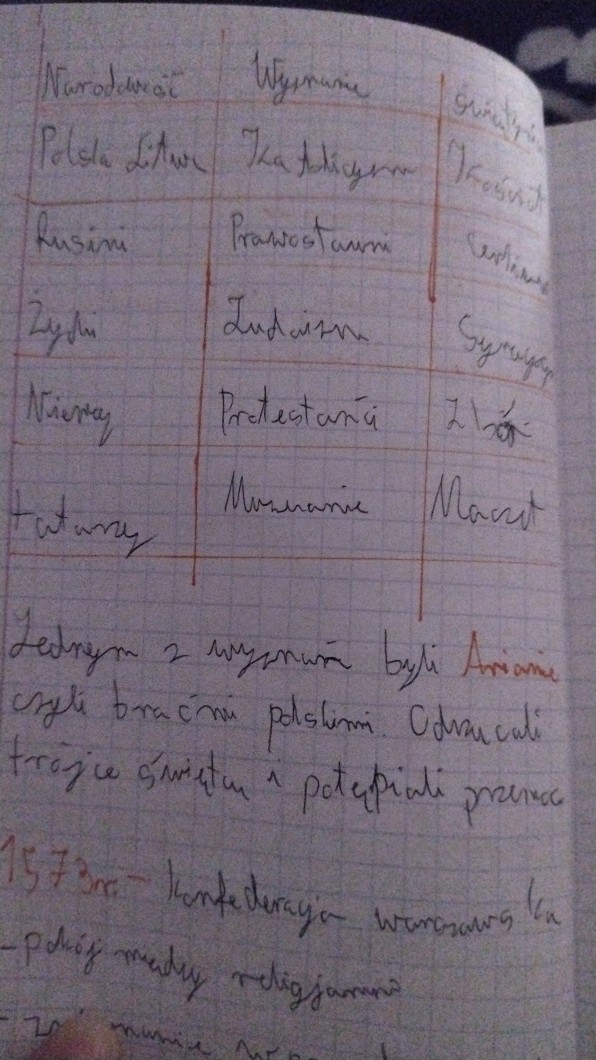 Narodowość Wyznanie świątynia
Polska Litwa Katolicyzm Kościół
Rusini Prawosławni Cerkiew
Żydzi Judaizm Synagoga
Niemcy Protestanći Zbór
tatarzy Muzumanie Maczet
Jednym z wyznań byli Arianie
czyli braćmi polskimi. Odrzucali
trójce świętą i potępiali przemoc
1573r. - Konfederacja warszawska
- pokój między religjami
-